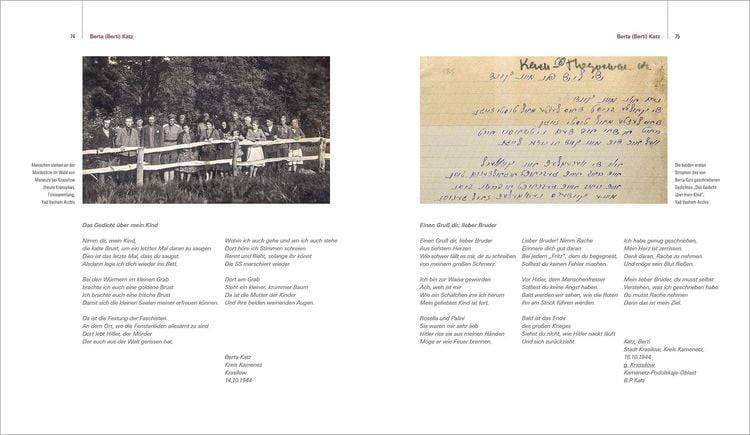 74 Berta (Berti) Katz
Menschen stehen an der
Mordstätte im Wald von
bei Krasilow
(heute
Fotosammlung,
Yad Vashem Archiv
Das Gedicht über mein Kind
Nimm dir, mein Kind,
die kalte Brust, um ein letztes Mal daran zu saugen.
Dies ist das letzte Mal, dass du saugst.
Alsdann lege ich dich wieder ins Bett.
Bei den Würmern im kleinen Grab
brachte ich euch eine goldene Brust
Ich brachte euch eine frische Brust
Damit sich die kleinen Seelen mainer erfreuen können.
Da ist die Festung der Faschisten.
An dem Ort, wo die Fensterläden allesamt zu sind
Dort lebt Hitler, der Mörder
Der euch aus der Welt gerissen hat.
Wohin ich auch gehe und wo ich auch stehe
Dort höre ich Stimmen schreien
Rennt und flieht, solange ihr könnt
Die SS marschiert wieder
Dort am Grab
Steht ein kleiner, krummer Baum
Da ist die Mutter der Kinder
Und ihre beiden weinenden Augen.
Berta Katz
Kreis Kamenez
Krasilow
14.10.1944
Berta (Berti) Katz 75
Die beiden ersten
Strophen des von
Berta Katz geschriebenen
Gedichtes „Das Gedicht
über mein Kind“,
Yad Vashem Archiv
Einen Gruß dir, lieber Bruder
Einen Gruß dir, lieber Bruder
Aus tiefstem Herzen
Wie schwer fällt es mir, dir zu schreiben
von meinem großen Schmerz.
Ich bin zur Waise geworden
Ach, weh ist mir
Wie ein Schäfchen irre ich herum
Mein geliebtes Kind ist fort.
Rosella und Palini
Sie waren mir sehr lieb
Hitler riss sie aus meinen Händen
Möge er wie Feuer brennen.
Lieber Bruder! Nimm Rache
Erinnere dich gut daran
Bei jedem „Fritz“, dem du begegnest,
Solltest du keinen Fehler machen.
Vor Hitler, dem Menschenfresser
Solltest du keine Angst haben.
Bald werden wir sehen, wie die Roten
ihn am Strick führen werden.
Bald ist das Ende
des großen Krieges
Siehst du nicht, wie Hitler nackt läuft
Und sich zurückzieht.
Ich habe genug geschrieben,
Mein Herz ist zerrissen.
Denk daran, Rache zu nehmen.
Und möge sein Blut fließen.
Mein lieber Bruder, du musst selbst
Verstehen, was ich geschrieben habe.
Du musst Rache nehmen
Denn das ist mein Ziel.
Katz, Berti
Stadt Krasilow, Kreis Kamenetz,
16.10.1944
g. Krassilow
Kamenetz-Podolskaja-Oblast
B.P.Katz